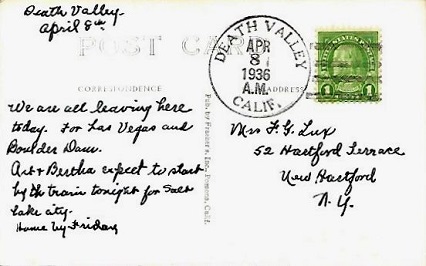 Death Valley.
April 8th
POST CARD
CORRESPONDENCE
ADDRESS
We are all leaving here
today. For Las Vegas and
Boulder Dam.
Art & Bertha expect to start
by the train tonight for Salt
Lake City.
Home by Friday
Pub. by Frashers, Inc., Pomona, Calif.
DEATH VALLEY
APR
8
1936
A.M.
CALIF.
1 1
Mrs F. G. Lux
52 Hartford Terrace
New Hartford
N.Y.